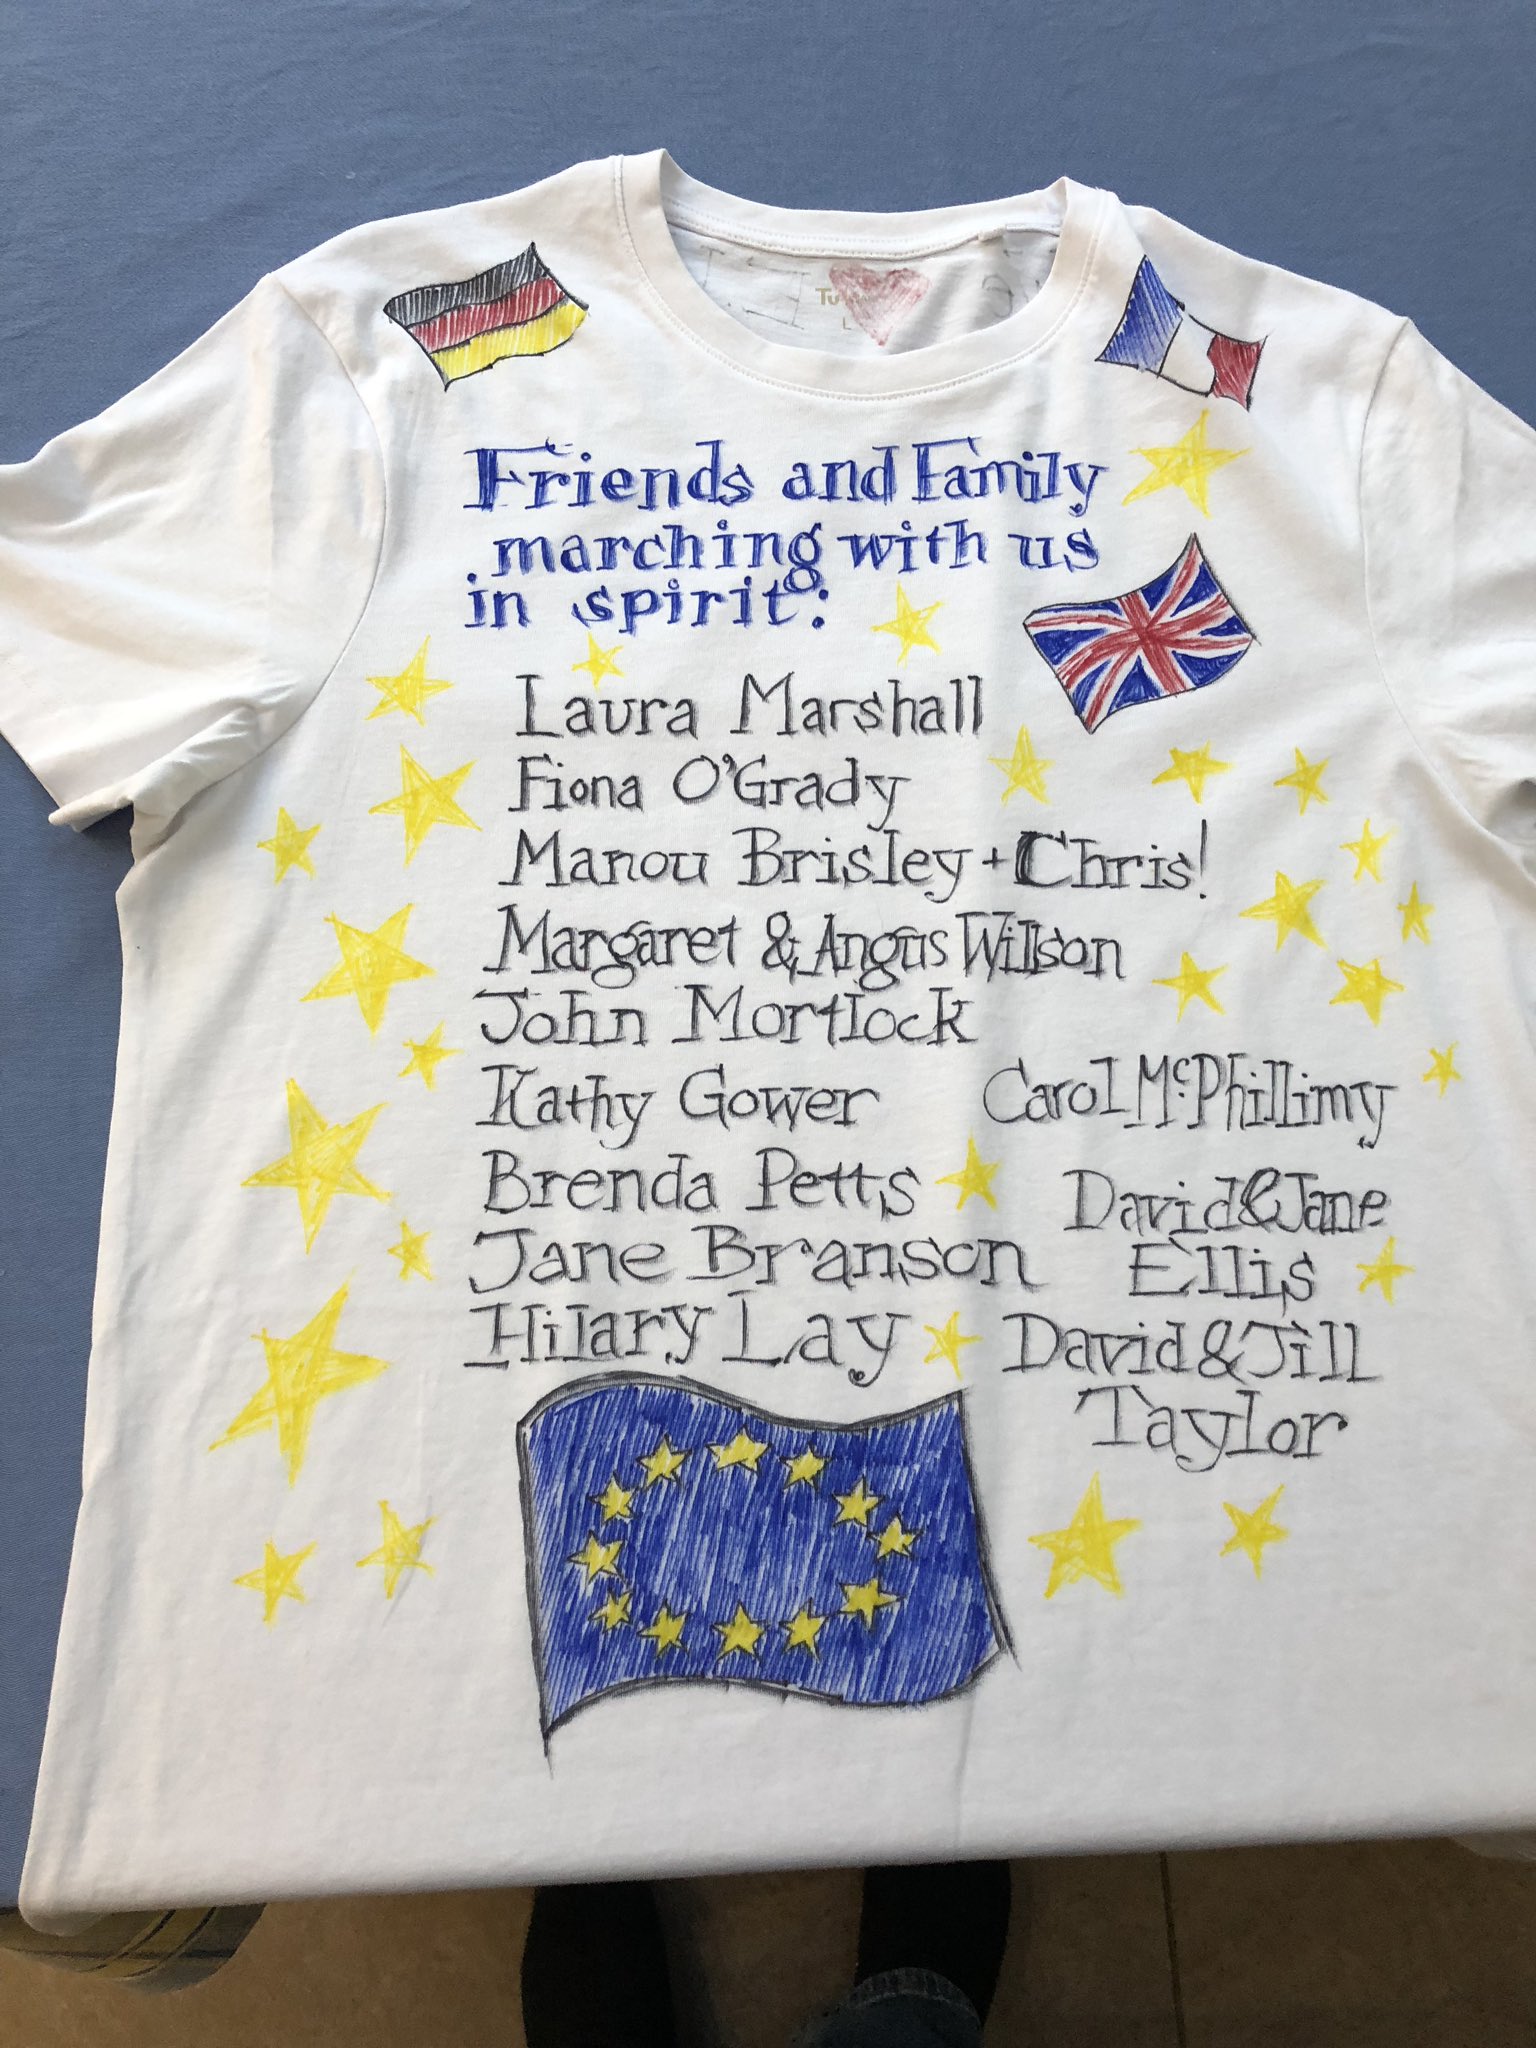 Friends and Family
marching with us
in spirit:
Laura Marshall
Fiona O'Grady
Manou Brisley + Chris!
Margaret & Angus Willson
John Mortlock
Kathy Gower
Brenda Petts
Jane Branson
Hilary Lay
Carol McPhillimy
David & Jane
Ellis
David & Jill
Taylor